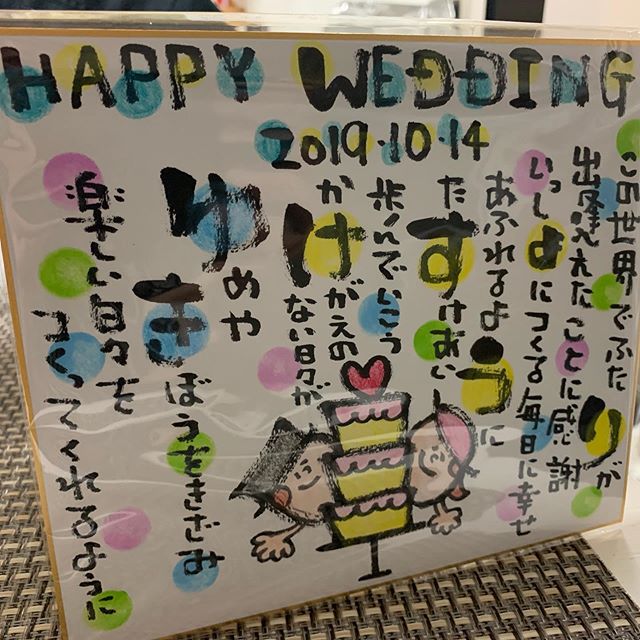 HAPPY WEDDING
2019.10.14
この世界でふたりが
出逢えたことに感謝
いっしょにつくる毎日に幸せ
あふれるように
たすけあい
歩んでいこう
かけがえの
ない日々が
ゆめや
きぼうをきざみ
楽しい日々を
つくってくれるように